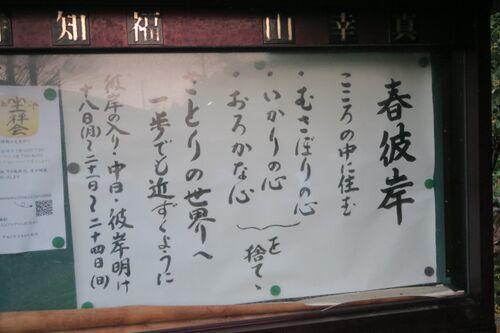 真幸山福知寺
春彼岸
こころの中に住む
・むさぼりの心
・いかりの心
・おろかな心
を捨て、
さとりの世界へ
一歩でも近ずくように
彼岸の入り・中日・彼岸明け
十八日(月)〜二十一日〜二十四日(日)
坐禅会